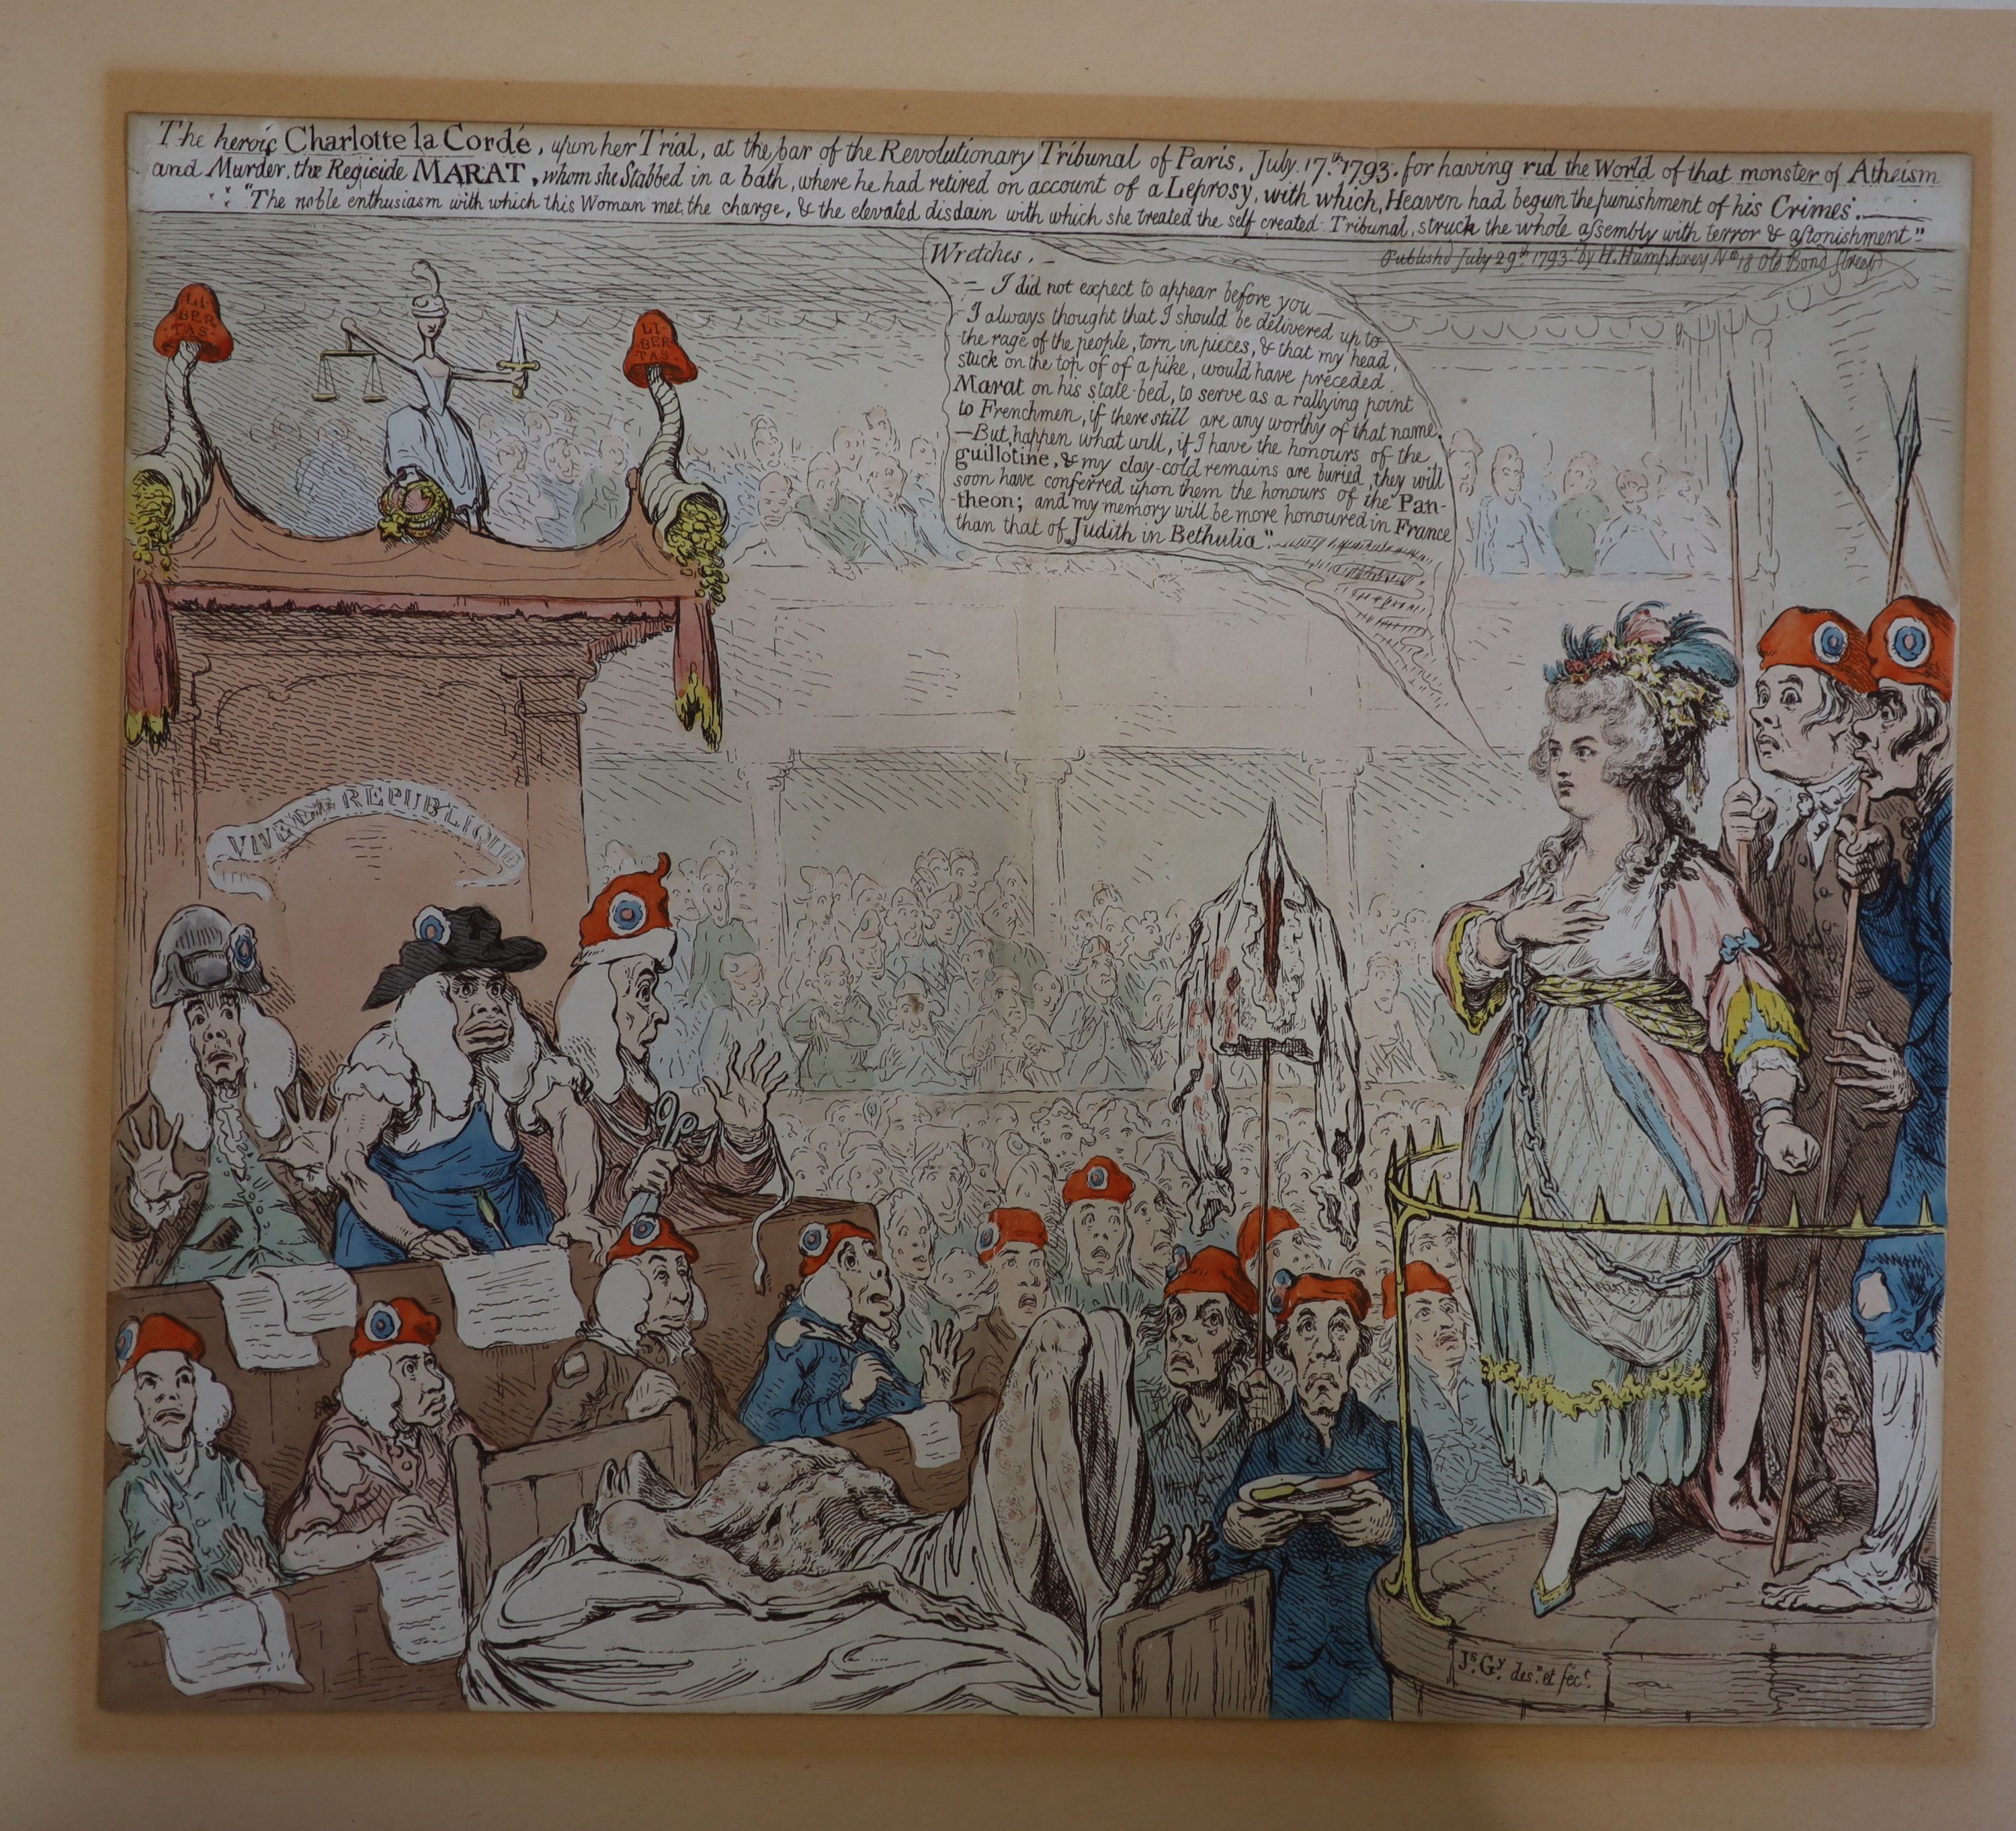 The heroic Charlotte la Cordé, upon her Trial, at the bar of the Revolutionary Tribunal of Paris, July 17th 1793. for having rid the World of that monster of Atheism
and Murder, the Regicide MARAT, whom she Stabbed in a bath, where he had retired on account of a Leprosy, with which, Heaven had begun the punishment of his Crimes.
"The noble enthusiasm with which this Woman met the charge, & the elevated disdain with which she treated the self created Tribunal, struck the whole assembly with terror & astonishment."
Publishd July 29th 1793. by H. Humphrey No 18 Old Bond Street
Wretches,—
— I did not expect to appear before you—
I always thought that I should be delivered up to
the rage of the people, torn in pieces, & that my head,
stuck on the top of of a pike, would have preceded
Marat on his state-bed, to serve as a rallying point
to Frenchmen, if there still are any worthy of that name.
—But, happen what will, if I have the honours of the
guillotine, & my clay-cold remains are buried, they will
soon have conferred upon them the honours of the Pan-
-theon; and my memory will be more honoured in France
than that of Judith in Bethulia".
LI-
BER
TAS-
LI-
BER
TAS-
VIVE LA REPUBLIQUE
Js. Gy. desn. et fect.